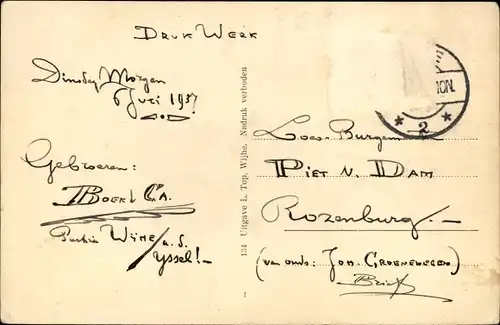 DRUK WERK
Dinsdag Morgen
6 Juli 1937
Gebroeren:
BOEKL CA.
WIJHE a.d.
Yssel!-
134 Uitgave L. Top, Wijhe. Nadruk verboden
Loco-Burgem
PIET N. DAM
Rozenburg.-
(van ouds: JOH. GROENEWEGEN)
2